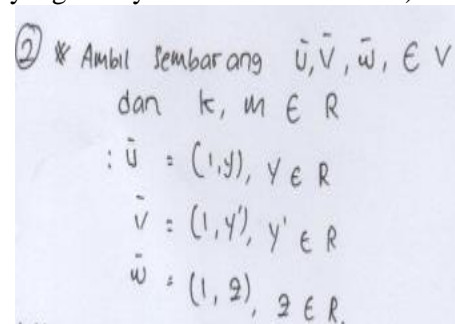 ② * Ambil sembarang ū, v̄, w̄, ∈ V
dan k, m ∈ R
: ū = (1,y), y ∈ R
v̄ = (1,y'), y' ∈ R
w̄ = (1, 2), 2 ∈ R.